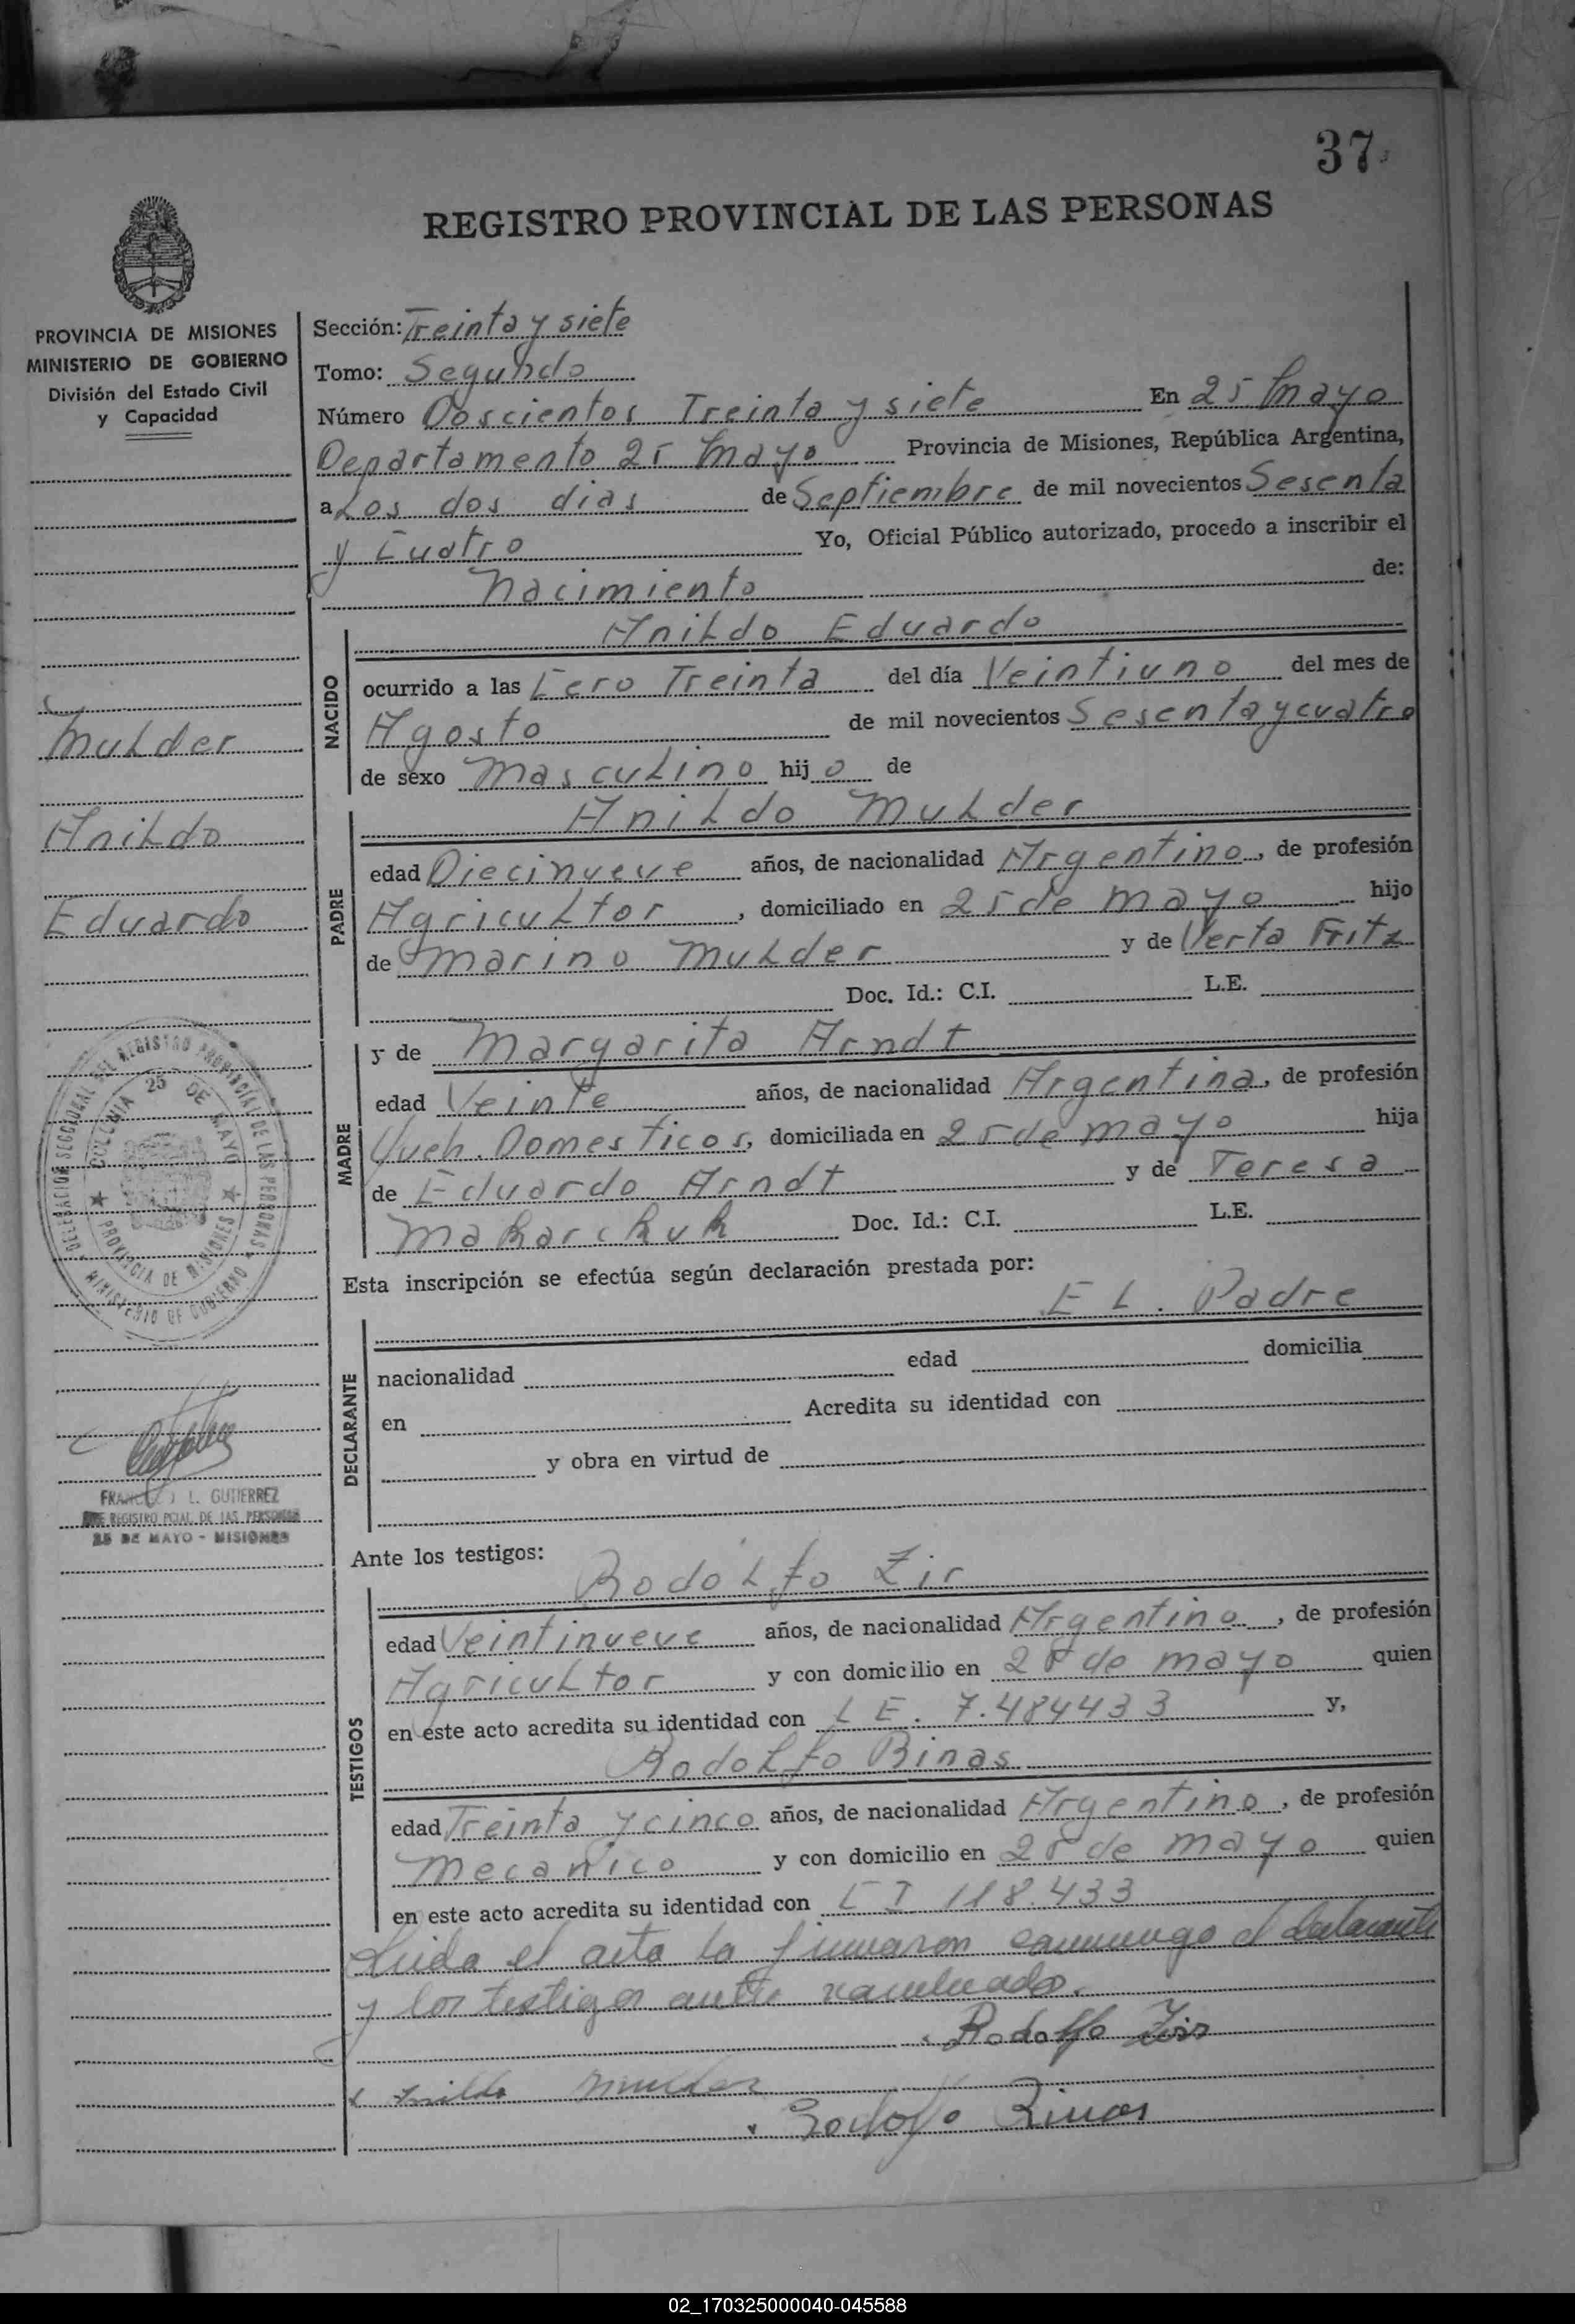 37
REGISTRO PROVINCIAL DE LAS PERSONAS
PROVINCIA DE MISIONES
MINISTERIO DE GOBIERNO
División del Estado Civil
y Capacidad
Mulder
Anildo
Eduardo
DELEGACION SECCIONAL DEL REGISTRO PROVINCIAL DE LAS PERSONAS
MINISTERIO DE GOBIERNO
COLONIA 25 DE MAYO
PROVINCIA DE MISIONES
L. GUTIERREZ
REGISTRO PCIAL. DE LAS PERSONAS
25 DE MAYO - MISIONES
Sección: Treinta y siete
Tomo: Segundo
Número Doscientos Treinta y siete En 25 Mayo
Departamento 25 Mayo Provincia de Misiones, República Argentina,
a Los dos dias de Septiembre de mil novecientos Sesenta
y Cuatro Yo, Oficial Público autorizado, procedo a inscribir el
Nacimiento de:
NACIDO
Anildo Eduardo
ocurrido a las Cero Treinta del día Veintiuno del mes de
Agosto de mil novecientos Sesenta y cuatro
de sexo Masculino hijo de
PADRE
Anildo Mulder
edad Diecinueve años, de nacionalidad Argentino, de profesión
Agricultor, domiciliado en 25 de Mayo hijo
de Marino Mulder y de Verta Fritz
Doc. Id.: C.I. L.E.
MADRE
y de Margarita Arndt
edad Veinte años, de nacionalidad Argentina, de profesión
Queh. Domesticos, domiciliada en 25 de Mayo hija
de Eduardo Arndt y de Teresa
Makarchuk Doc. Id.: C.I. L.E.
Esta inscripción se efectúa según declaración prestada por:
EL. Padre
DECLARANTE
nacionalidad edad domicilia
en Acredita su identidad con
y obra en virtud de
Ante los testigos:
TESTIGOS
Rodolfo Zir
edad Veintinueve años, de nacionalidad Argentino, de profesión
Agricultor y con domicilio en 25 de Mayo quien
en este acto acredita su identidad con L E. 7.484433 y,
Rodolfo Binas
edad Treinta y cinco años, de nacionalidad Argentino, de profesión
Mecanico y con domicilio en 25 de Mayo quien
en este acto acredita su identidad con C I 118.433
Leida el acta la firmaron conmigo el declarante
y los testigos
Rodolfo Zir
Anildo Mulder
Rodolfo Binas
02_170325000040-045588